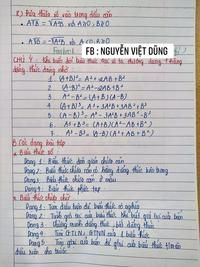 K) Đưa thừa số vào trong dấu căn
• A√B = √A²B với A≥0, B≥0
• A√B = -√A²B với A<0, B≥0
FB : NGUYỄN VIỆT DŨNG
CHÚ Ý: Khi biến đổi biểu thức đại số ta thường dùng 7 hằng
đẳng thức đáng nhớ
1. (A+B)² = A²+2AB+B²
2. (A-B)² = A²-2AB+B²
3. A²-B² = (A+B)(A-B)
4. (A+B)³ = A³+3A²B+3AB²+B³
5. (A-B)³ = A³-3A²B+3AB²-B³
6. A³+B³ = (A+B)(A²-AB+B²)
7. A³-B³ = (A-B)(A²+AB+B²)
B) Các dạng bài tập
a. Biểu thức số
Dạng 1: Biểu thức đơn giản chứa căn
Dạng 2: Biểu thức chứa căn có hằng đẳng thức bên trong
Dạng 3: Biểu thức chứa căn ở mẫu
Dạng 4: Biểu thức phức tạp
b. Biểu thức chứa chữ
Dạng 1: Tìm điều kiện để biểu thức có nghĩa
Dạng 2: Tính giá trị của biểu thức khi biết giá trị của biến
Dạng 3: Chứng minh đẳng thức, bất đẳng thức
Dạng 4: Tìm GTLN, GTNN của 1 biểu thức
Dạng 5: Tìm giá trị của biến để giá trị của biểu thức thỏa mãn
điều kiện cho trước